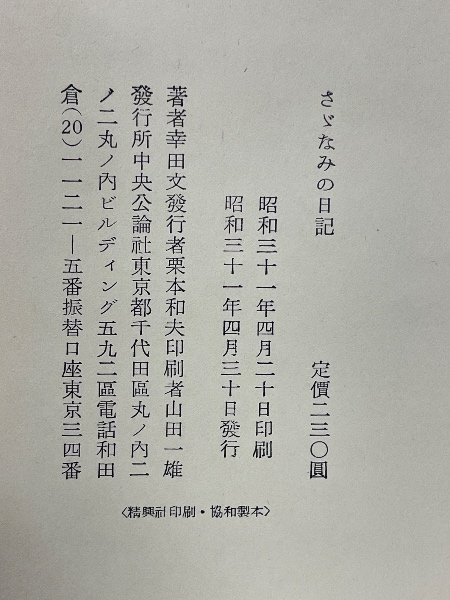 さゞなみの日記　定價二三〇圓
昭和三十一年四月二十日印刷
昭和三十一年四月三十日發行
著者幸田文發行者栗本和夫印刷者山田一雄
發行所中央公論社東京都千代田區丸ノ內二
ノ二丸ノ內ビルディング五九二區電話和田
倉(20)一一二一—五番振替口座東京三四番
〈精興社印刷・協和製本〉